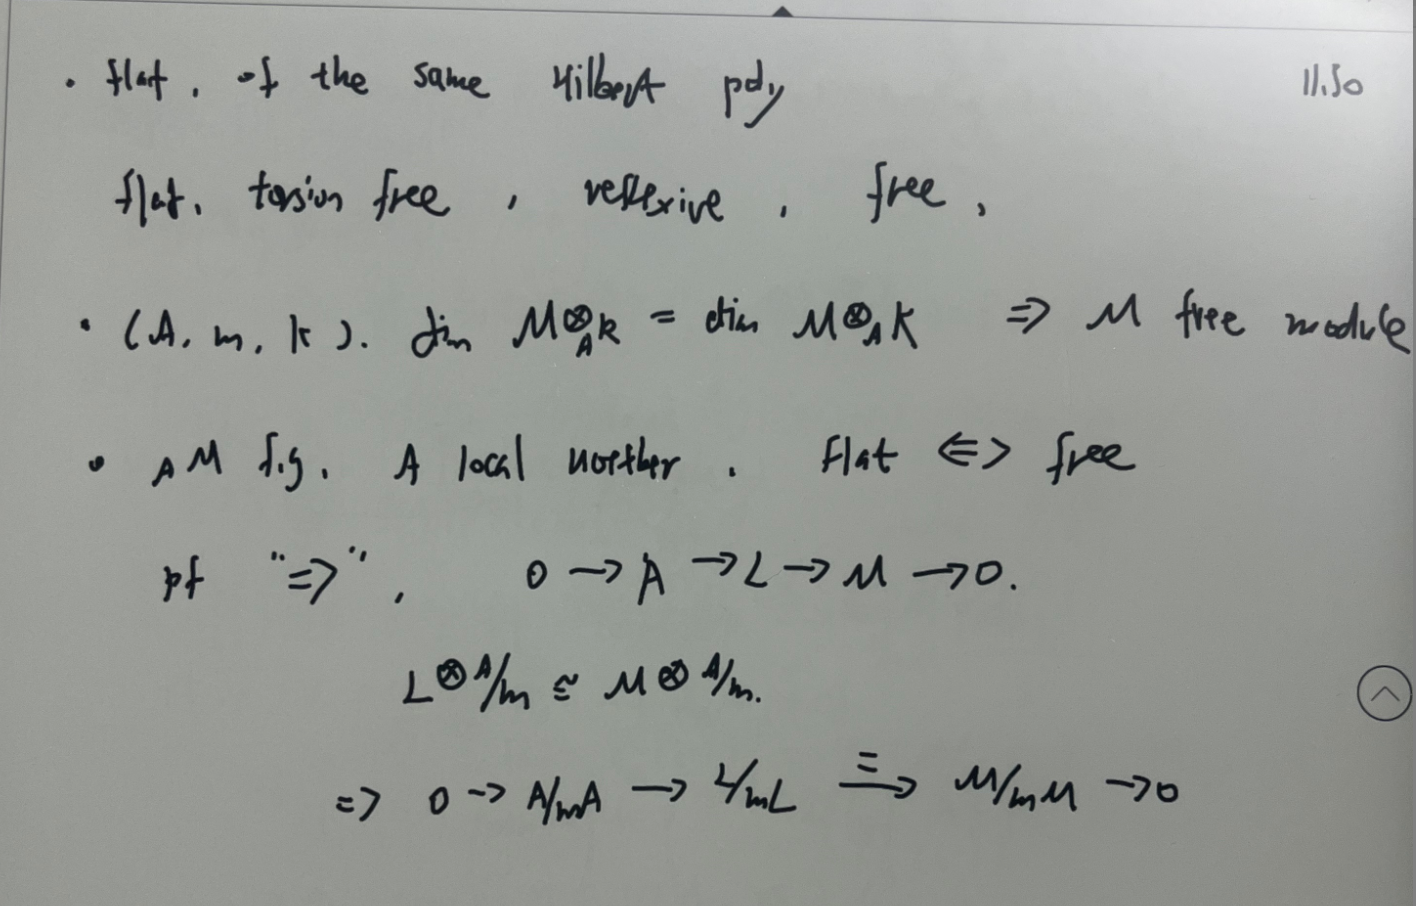 · flat, of the same Hilbert poly 11.50
flat, torsion free, reflexive, free,
· (A, m, k). dim M⊗_A k = dim M⊗_A K ⇒ M free module
· _A M f.g. A local noether. Flat ⇔ free
pf "⇒", 0 → A → L → M → 0.
L⊗A/m ≅ M⊗A/m.
⇒ 0 → A/mA → L/mL ⇒ M/mM → 0